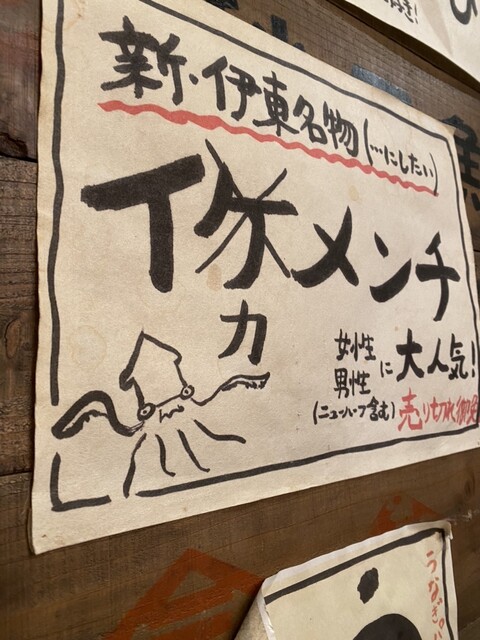 新・伊東名物(…にしたい)
イケメンチ
カ
女性
男性
に大人気!
(ニューハーフ含む)
売り切れ御免
うなぎ